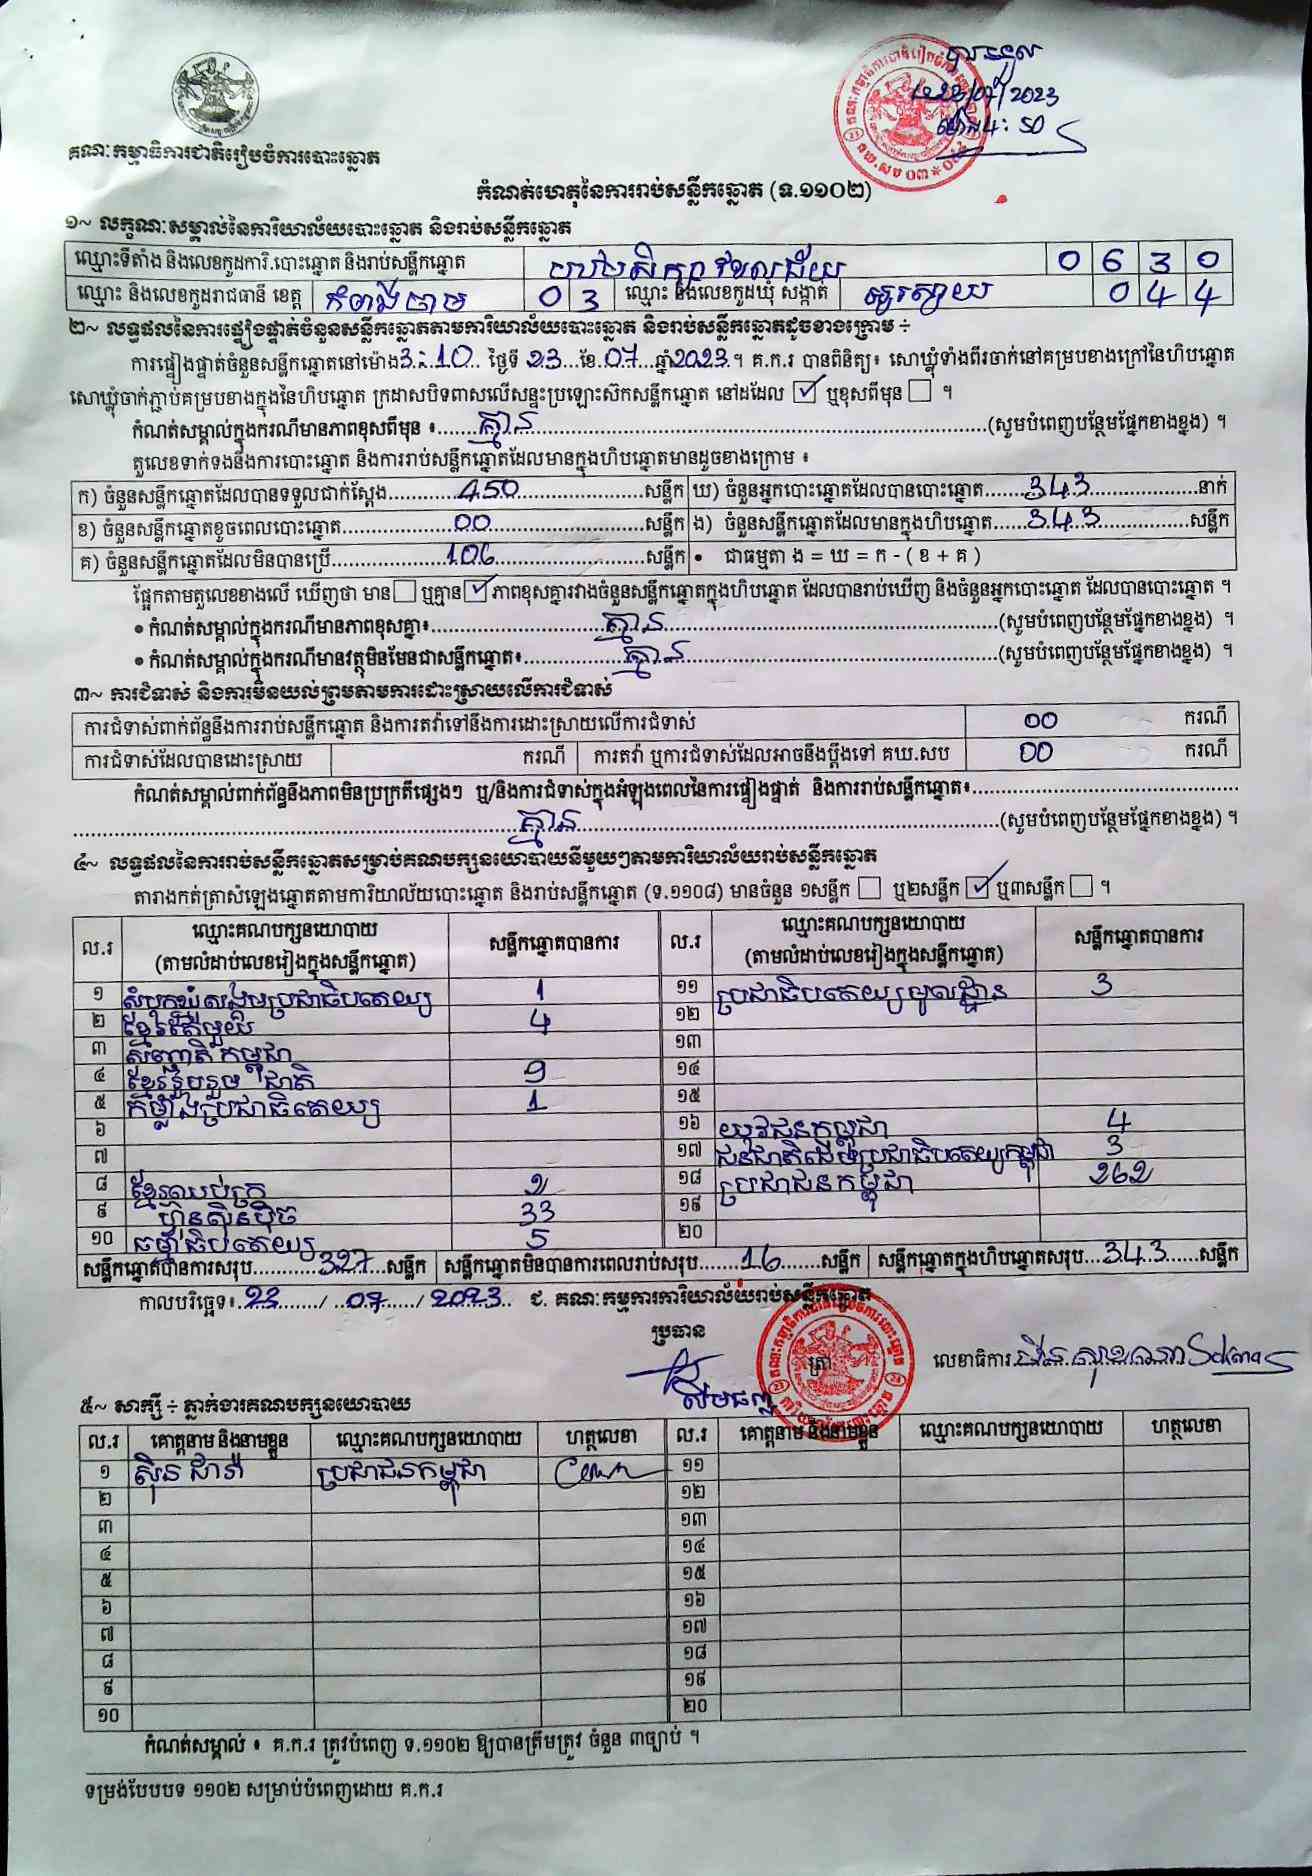 បានទទួល
23/07/2023
ម៉ោង 4:50
គណៈកម្មាធិការជាតិរៀបចំការបោះឆ្នោត
កំណត់ហេតុនៃការរាប់សន្លឹកឆ្នោត (ទ.១១០២)
១~ លក្ខណៈសម្គាល់នៃការិយាល័យបោះឆ្នោត និងរាប់សន្លឹកឆ្នោត
ឈ្មោះទីតាំង និងលេខកូដការិ.បោះឆ្នោត និងរាប់សន្លឹកឆ្នោត 0 6 3 0
ឈ្មោះ និងលេខកូដរាជធានី ខេត្ត កំពង់ចាម 0 3 ឈ្មោះ និងលេខកូដឃុំ សង្កាត់ 0 4 4
២~ លទ្ធផលនៃការផ្ទៀងផ្ទាត់ចំនួនសន្លឹកឆ្នោតតាមការិយាល័យបោះឆ្នោត និងរាប់សន្លឹកឆ្នោតដូចខាងក្រោម ÷
ការផ្ទៀងផ្ទាត់ចំនួនសន្លឹកឆ្នោតនៅម៉ោង 3:10 ថ្ងៃទី 23 ខែ 07 ឆ្នាំ 2023 ។ គ.ក.រ បានពិនិត្យ៖ សោឃ្លុំទាំងពីរចាក់នៅគម្របខាងក្រៅនៃហិបឆ្នោត
សោឃ្លុំចាក់ភ្ជាប់គម្របខាងក្នុងនៃហិបឆ្នោត ក្រដាសបិទពាសលើសន្ទះប្រឡោះស៊កសន្លឹកឆ្នោត នៅដដែល ☑ ឬខុសពីមុន ☐ ។
កំណត់សម្គាល់ក្នុងករណីមានភាពខុសពីមុន ៖ គ្មាន (សូមបំពេញបន្ថែមផ្នែកខាងខ្នង) ។
តួលេខទាក់ទងនឹងការបោះឆ្នោត និងការរាប់សន្លឹកឆ្នោតដែលមានក្នុងហិបឆ្នោតមានដូចខាងក្រោម ៖
ក) ចំនួនសន្លឹកឆ្នោតដែលបានទទួលជាក់ស្តែង 450 សន្លឹក ឃ) ចំនួនអ្នកបោះឆ្នោតដែលបានបោះឆ្នោត 343 នាក់
ខ) ចំនួនសន្លឹកឆ្នោតខូចពេលបោះឆ្នោត 00 សន្លឹក ង) ចំនួនសន្លឹកឆ្នោតដែលមានក្នុងហិបឆ្នោត 343 សន្លឹក
គ) ចំនួនសន្លឹកឆ្នោតដែលមិនបានប្រើ 106 សន្លឹក • ជាធម្មតា ង = ឃ = ក - ( ខ + គ )
ផ្អែកតាមតួលេខខាងលើ ឃើញថា មាន ☐ ឬគ្មាន ☑ ភាពខុសគ្នារវាងចំនួនសន្លឹកឆ្នោតក្នុងហិបឆ្នោត ដែលបានរាប់ឃើញ និងចំនួនអ្នកបោះឆ្នោត ដែលបានបោះឆ្នោត ។
• កំណត់សម្គាល់ក្នុងករណីមានភាពខុសគ្នា៖ គ្មាន (សូមបំពេញបន្ថែមផ្នែកខាងខ្នង) ។
• កំណត់សម្គាល់ក្នុងករណីមានវត្ថុមិនមែនជាសន្លឹកឆ្នោត៖ គ្មាន (សូមបំពេញបន្ថែមផ្នែកខាងខ្នង) ។
៣~ ការជំទាស់ និងការមិនយល់ព្រមតាមការដោះស្រាយលើការជំទាស់
ការជំទាស់ពាក់ព័ន្ធនឹងការរាប់សន្លឹកឆ្នោត និងការតវ៉ាទៅនឹងការដោះស្រាយលើការជំទាស់ 00 ករណី
ការជំទាស់ដែលបានដោះស្រាយ ករណី ការតវ៉ា ឬការជំទាស់ដែលអាចនឹងប្តឹងទៅ គឃ.សប 00 ករណី
កំណត់សម្គាល់ពាក់ព័ន្ធនឹងភាពមិនប្រក្រតីផ្សេងៗ ឬ/និងការជំទាស់ក្នុងអំឡុងពេលនៃការផ្ទៀងផ្ទាត់ និងការរាប់សន្លឹកឆ្នោត៖
គ្មាន (សូមបំពេញបន្ថែមផ្នែកខាងខ្នង) ។
៤~ លទ្ធផលនៃការរាប់សន្លឹកឆ្នោតសម្រាប់គណបក្សនយោបាយនីមួយៗតាមការិយាល័យរាប់សន្លឹកឆ្នោត
តារាងកត់ត្រាសំឡេងឆ្នោតតាមការិយាល័យបោះឆ្នោត និងរាប់សន្លឹកឆ្នោត (ទ.១១០៨) មានចំនួន ១សន្លឹក ☐ ឬ២សន្លឹក ☑ ឬ៣សន្លឹក ☐ ។
ល.រ ឈ្មោះគណបក្សនយោបាយ (តាមលំដាប់លេខរៀងក្នុងសន្លឹកឆ្នោត) សន្លឹកឆ្នោតបានការ ល.រ ឈ្មោះគណបក្សនយោបាយ (តាមលំដាប់លេខរៀងក្នុងសន្លឹកឆ្នោត) សន្លឹកឆ្នោតបានការ
១ សំបុកឃ្មុំសង្គមប្រជាធិបតេយ្យ 1 ១១ ប្រជាធិបតេយ្យមូលដ្ឋាន 3
២ ខ្មែរតែមួយ 4 ១២
៣ សញ្ជាតិកម្ពុជា ១៣
៤ ខ្មែររួបរួមជាតិ 9 ១៤
៥ កម្លាំងប្រជាធិតេយ្យ 1 ១៥
៦ ១៦ យុវជនកម្ពុជា 4
៧ ១៧ ជនជាតិដើមប្រជាធិបតេយ្យកម្ពុជា 3
៨ ខ្មែរឈប់ក្រ 2 ១៨ ប្រជាជនកម្ពុជា 262
៩ ហ៊្វុនស៊ិនប៉ិច 33 ១៩
១០ ធម្មាធិបតេយ្យ 5 ២០
សន្លឹកឆ្នោតបានការសរុប 327 សន្លឹក សន្លឹកឆ្នោតមិនបានការពេលរាប់សរុប 16 សន្លឹក សន្លឹកឆ្នោតក្នុងហិបឆ្នោតសរុប 343 សន្លឹក
កាលបរិច្ឆេទ៖ 23 / 07 / 2023 ជ. គណៈកម្មការការិយាល័យរាប់សន្លឹកឆ្នោត
ប្រធាន
ត្រា
លេខាធិការ
៥~ សាក្សី ÷ ភ្នាក់ងារគណបក្សនយោបាយ
ល.រ គោត្តនាម និងនាមខ្លួន ឈ្មោះគណបក្សនយោបាយ ហត្ថលេខា ល.រ គោត្តនាម និងនាមខ្លួន ឈ្មោះគណបក្សនយោបាយ ហត្ថលេខា
១ ស៊ិន ដារ៉ា ប្រជាជនកម្ពុជា ១១
២ ១២
៣ ១៣
៤ ១៤
៥ ១៥
៦ ១៦
៧ ១៧
៨ ១៨
៩ ១៩
១០ ២០
កំណត់សម្គាល់ ៖ គ.ក.រ ត្រូវបំពេញ ទ.១១០២ ឱ្យបានត្រឹមត្រូវ ចំនួន ៣ច្បាប់ ។
ទម្រង់បែបបទ ១១០២ សម្រាប់បំពេញដោយ គ.ក.រ